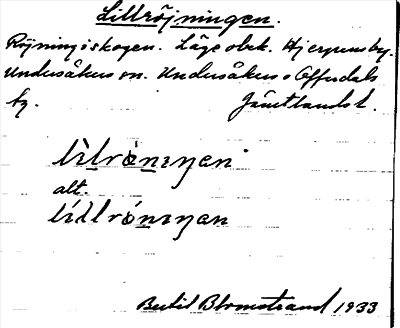 Lillröjningen.
Röjning i skogen. Läge obek. Hjerpens by.
Undersåkers sn. Undersåkers o Offerdals
tg. Jämtlands l.
lìlrǿniŋen
alt.
líllrǿniŋen
Bertil Blomstrand 1933